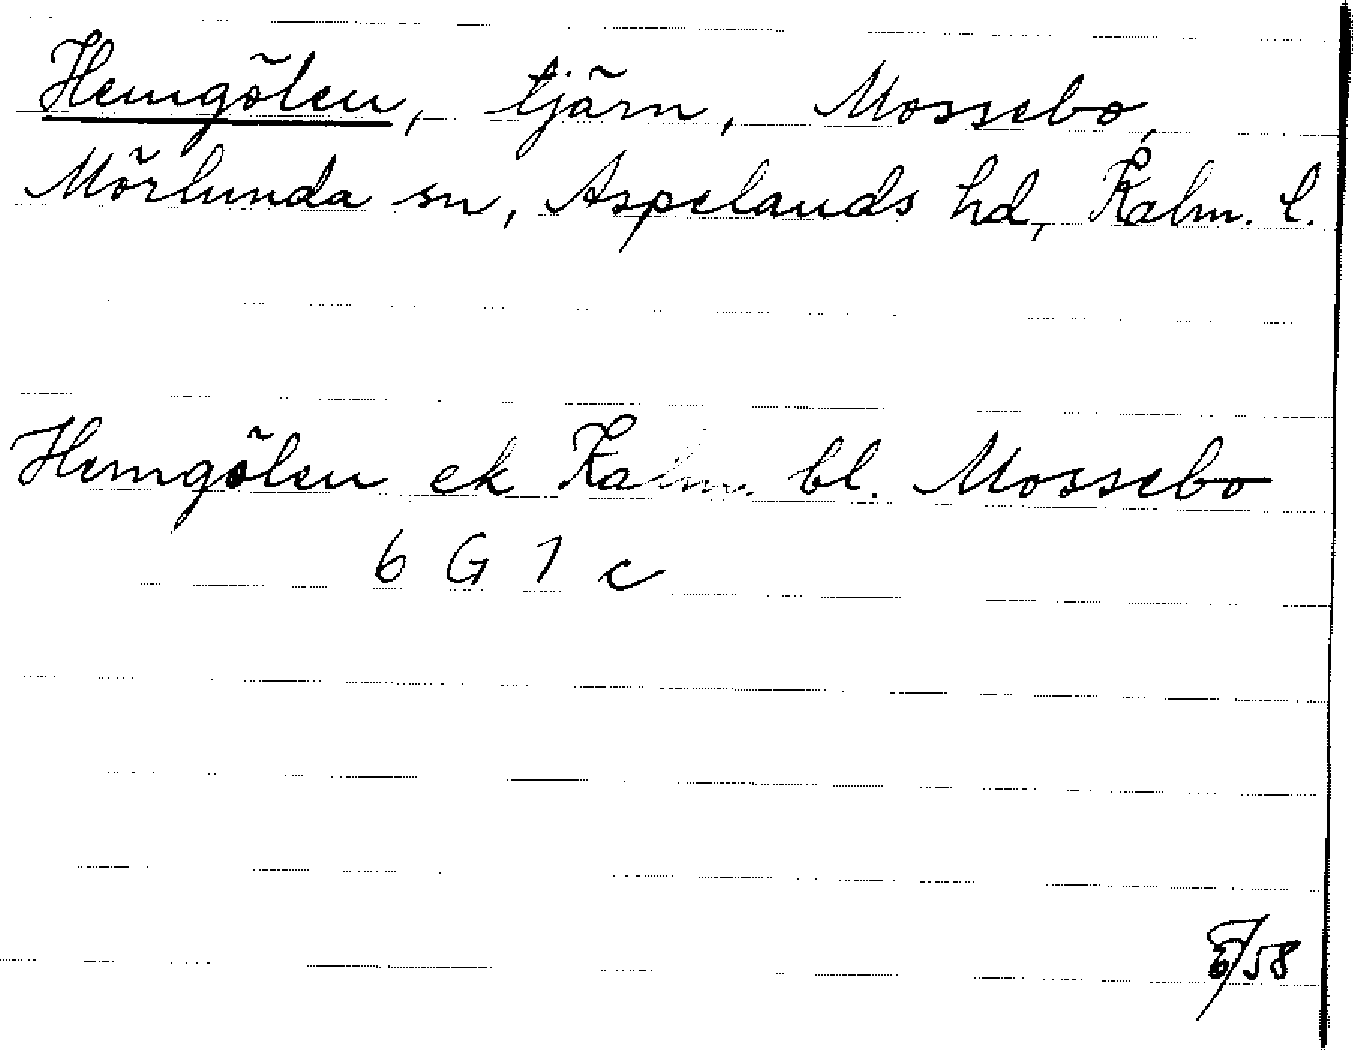 Hemgölen, tjärn, Mossebo,
Mörlunda sn, Aspelands hd, Kalm. l.
Hemgölen ek Kalm. bl. Mossebo
6 G 1 c
/58